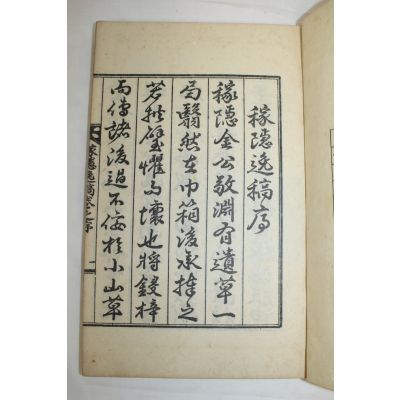 稼隱逸稿序
稼隱金公敬淵有遺草一
翳然在巾箱後承捧之
若拱璧懼壞也將鋟梓
而傳諸後過不佞於小山草
稼隱逸稿卷之序 一